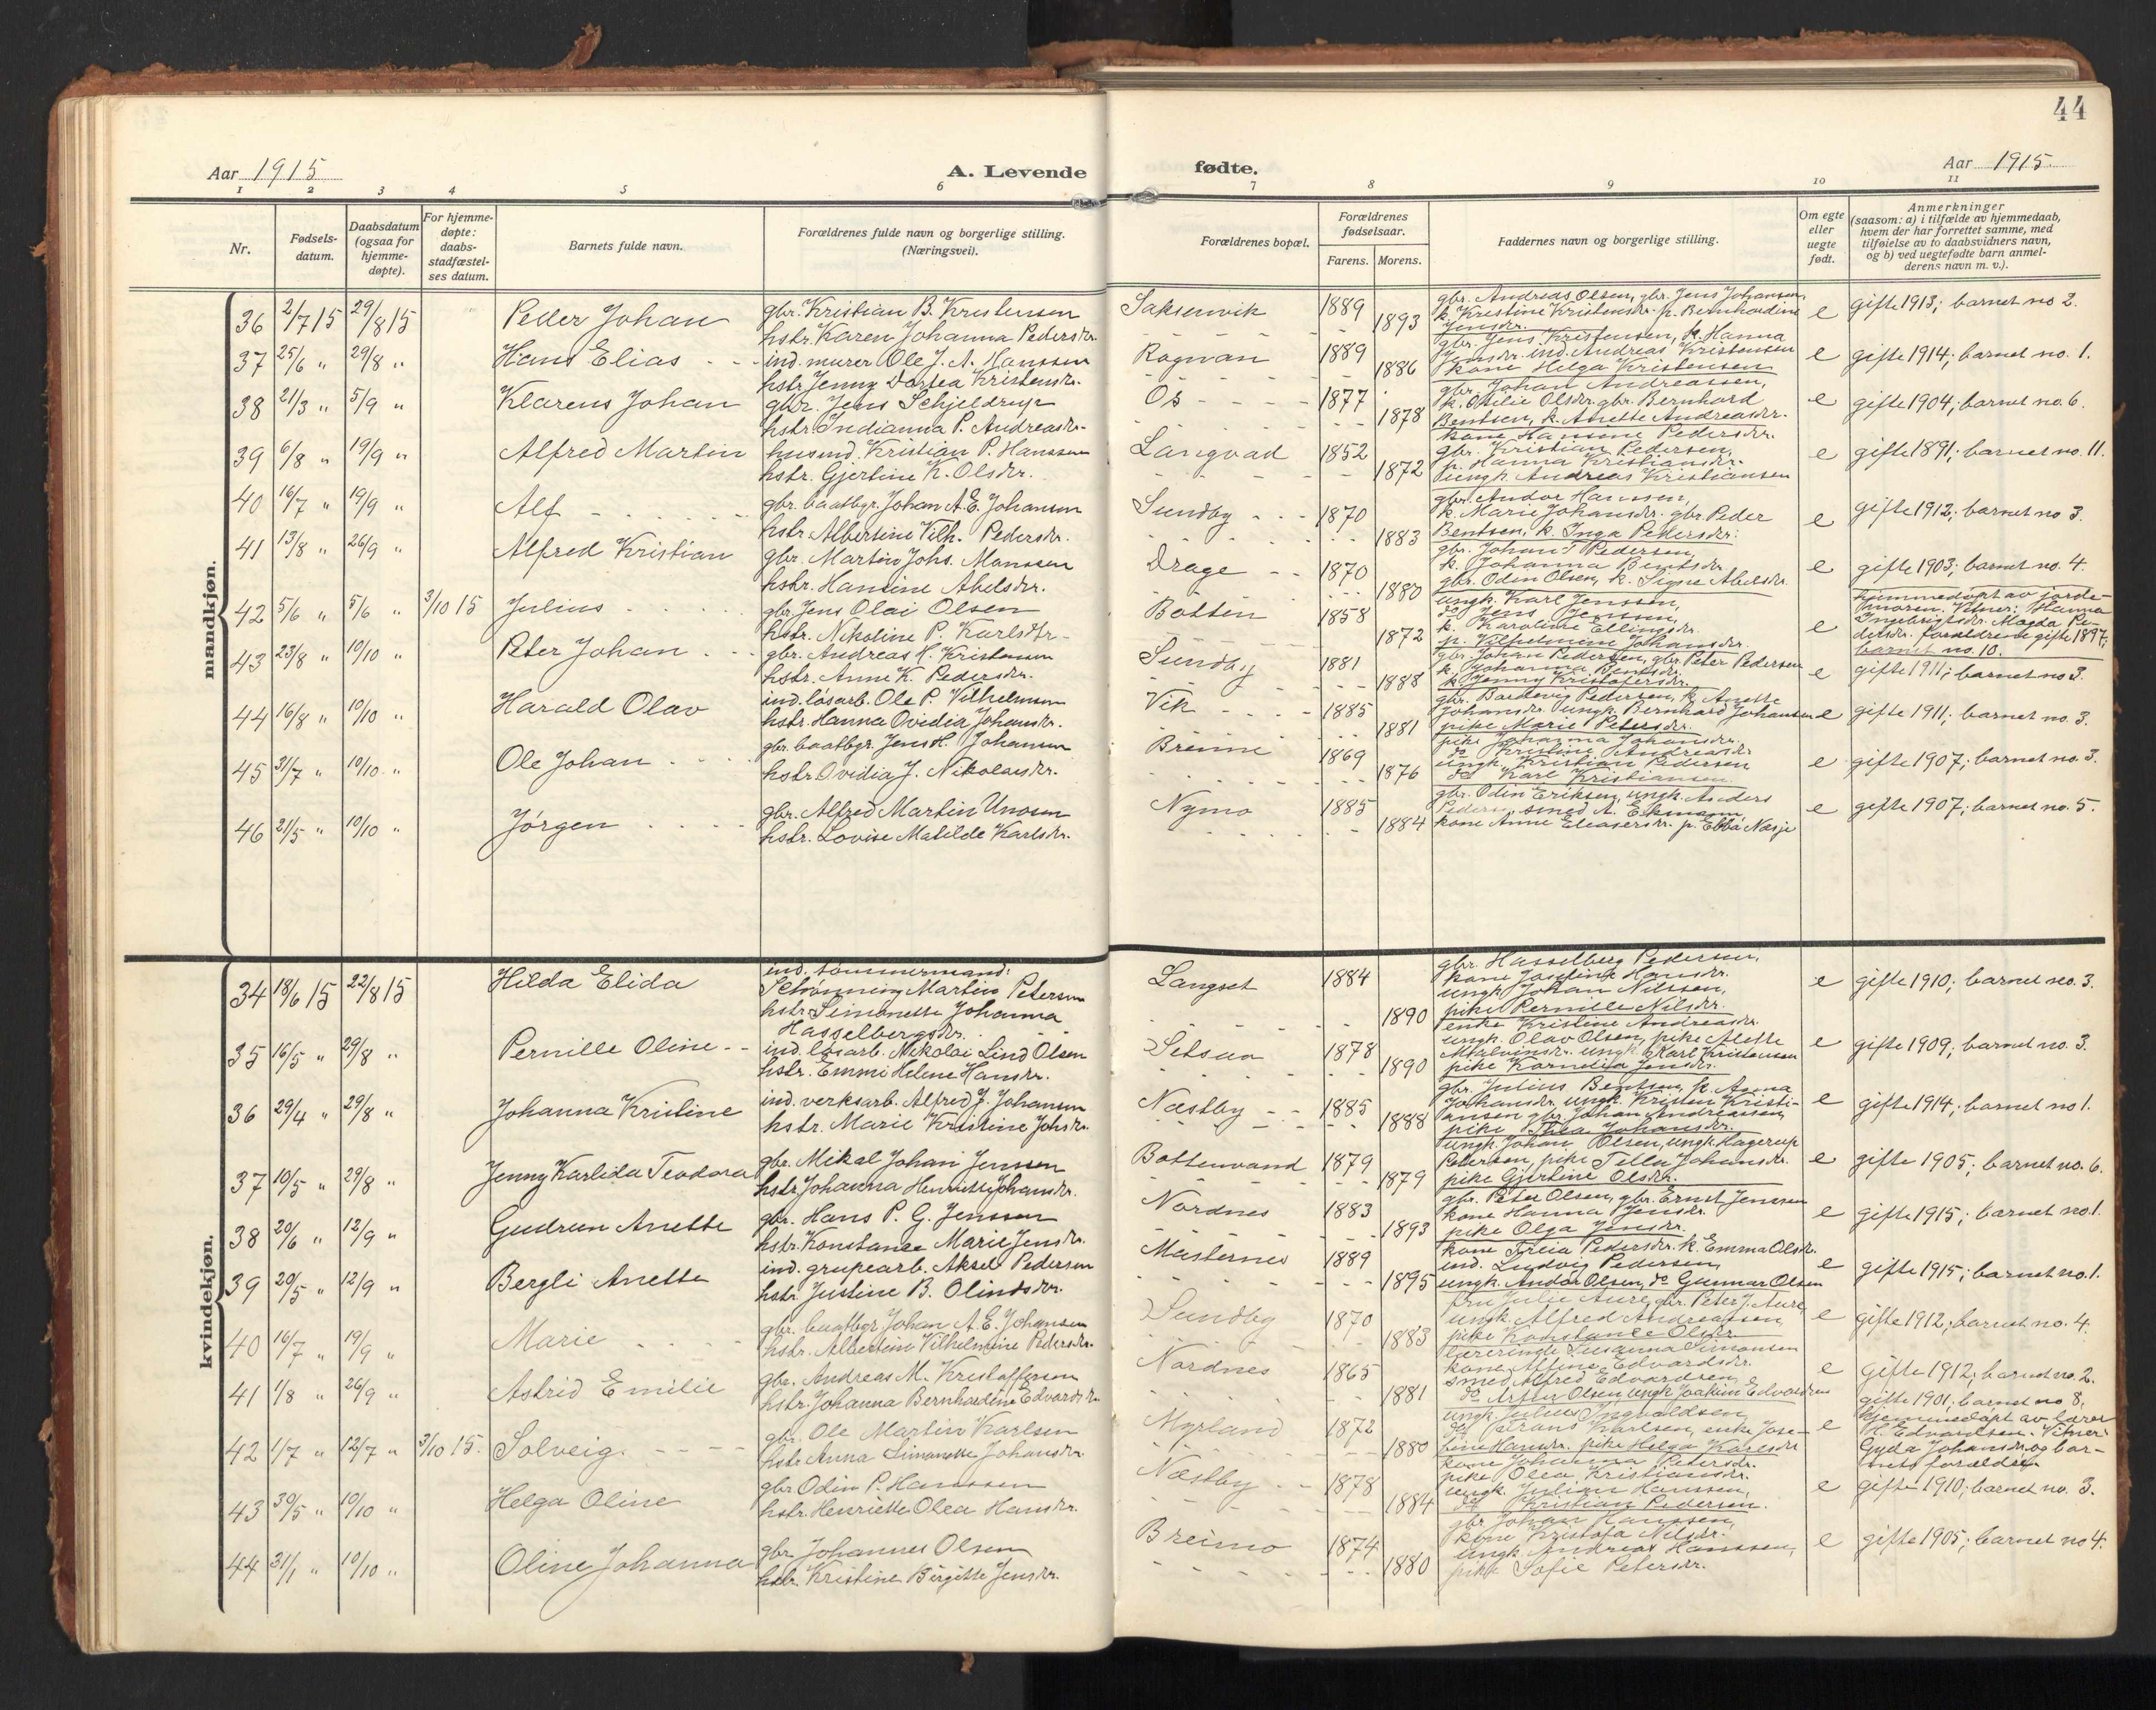 44
Aar 1915 A. Levende fødte. Aar 1915
1 2 3 4 5 6 7 8 9 10 11
Nr. Fødsels-datum. Daabsdatum (ogsaa for hjemme-døpte). For hjemme-døpte: daabs-stadfæstel-ses datum. Barnets fulde navn. Forældrenes fulde navn og borgerlige stilling. (Næringsvei). Forældrenes bopæl. Forældrenes fødselsaar. Farens. Morens. Faddernes navn og borgerlige stilling. Om egte eller uegte født. Anmerkninger (saasom: a) i tilfælde av hjemmedaab, hvem der har forrettet samme, med tilføielse av to daabsvidners navn, og b) ved uegtefødte barn anmel-derens navn m. v.).
mandkjøn.
36 2/7 15 29/8 15 Peder Johan gbr. Kristian B. Kristensen Saksenvik 1889 gbr. Andreas Olsen, gbr. Jens Johansen, e gifte 1913; barnet no 2.
hstr. Karen Johanna Pedersdr. 1893 k. Kristine Kristensdr. p. Bernhardine Jensdr.
37 25/6 " 29/8 " Hans Elias ind. murer Ole J. A. Hanssen Rognan 1889 gbr. Jens Kristensen, k. Hanna e gifte 1914; barnet no. 1.
hstr. Jenny Dortea Kristensdr. 1886 Jensdr. ind. Andreas Kristensen kone Helga Kristensen
38 21/3 " 5/9 " Klarens Johan gbr. Jens Schjeldrup Os 1877 gbr. Johan Andreassen, e gifte 1904; barnet no. 6.
hstr. Indianna P. Andreasdr. 1878 k. Otilie Olsdr. gbr. Bernhard Bentsen, k. Anette Andreasdr.
39 6/8 " 19/9 " Alfred Martin husmd. Kristian P. Hanssen Langvad 1852 kone Hansine Pedersdr. gbr. Kristian Pedersen, e gifte 1891; barnet no. 11.
hstr. Gjertine K. Olsdr. 1872 p. Hanna Kristiansdr. ungk. Andreas Kristiansen
40 16/7 " 19/9 " Alf gbr. baatbgr. Johan A. E. Johansen Sundby 1870 gbr. Andor Hanssen, e gifte 1912; barnet no 3.
hstr. Albertine Vilh. Pedersdr. 1883 k. Marie Johansdr. gbr. Peder Bentsen, k. Inga Pedersdr.
41 13/8 " 26/9 " Alfred Kristian gbr. Martin Johs. Monssen Drage 1870 gbr. Johan T Pedersen, e gifte 1903; barnet no. 4.
hstr. Hansine Abelsdr. 1880 k. Johanna Bentsdr. gbr. Odin Olsen, k. Signe Abelsdr.
42 5/6 " 5/6 " 3/10 15 Julius gbr. Jens Olai Olsen Botten 1858 ungk. Karl Jenssen, do Jens Jenssen, e hjemmedøpt av jorde-moren. Vitner: Hanna
hstr. Nikoline P. Karlsdtr 1872 k. Karoline Ellingsdr. p. Vilhelmine Johansdr. Ingebrigtsdr. Magda Pe-dersdr. forældrene gifte 1897; barnet no. 10.
43 23/8 " 10/10 " Peter Johan gbr. Andreas H. Kristensen Sundby 1881 gbr. Johan Pedersen, gbr. Peter Pedersen e gifte 1911; barnet no 3.
hstr. Anne K. Pedersdr. 1888 k. Johanna Bentsdr. k. Jenny Kristofersdr.
44 16/8 " 10/10 " Harald Olav ind. løsarb. Ole P. Vilhelmsen Vik 1885 gbr. Bardevig Pedersen, k. Anette e gifte 1911; barnet no. 3.
hstr. Hanna Ovidia Johansdr. 1881 Johansdr. ungk. Bernhard Johansen pike Marie Petersdr.
45 31/7 " 10/10 " Ole Johan gbr. baatbgr. Jens H. Johansen Breime 1869 pike Johanna Johansdr. do Kristine Andreasdr. e gifte 1907; barnet no. 3.
hstr. Ovidia J. Nikolaisdr. 1876 ungk. Kristian Pedersen do Karl Kristiansen.
46 21/5 " 10/10 " Jørgen gbr. Alfred Martin Unosen Nymo 1885 gbr. Odin Eriksen, ungk. Anders e gifte 1907; barnet no. 5.
hstr. Lovise Matilde Karlsdr. 1884 Pedersen, smed A. Ekmann, kone Anne Eleasersdr. p. Ebba Næsje
kvindekjøn.
34 18/6 15 22/8 15 Hilda Elida ind. tømmermand: Schønning Martin Petersen Langset 1884 gbr. Hasselberg Pedersen, kone Josefine Hansdr. e gifte 1910; barnet no. 3.
hstr. Simonette Johanna Hasselbergsdr. 1890 ungk. Johan Nilssen, pike Pernille Nilsdr.
35 16/5 " 29/8 " Pernille Oline ind. løsarb. Nikolai Lind Olsen Setsaa 1878 enke Kristine Andreasdr. ungk. Olav Olsen, pike Alette e gifte 1909; barnet no. 3.
hstr. Emmi Helene Hansdr. 1890 Malvinsdr. ungk. Karl Kristensen pike Kornelia Jensdr.
36 29/4 " 29/8 " Johanna Kristine ind. verksarb. Alfred J. Johansen Næstby 1885 gbr. Julius Bentsen, k. Anna e gifte 1914; barnet no 1.
hstr. Marie Kristine Johsdr. 1888 Johansdr. ungk. Kristen Kristi-ansen gbr. Johan Andreassen, pike Thea Johansdr.
37 10/5 " 29/8 " Jenny Karlida Teodora gbr. Mikal Johan Jenssen Bottenvand 1879 ungk. Johan Olsen, ungk. Hagerup e gifte 1905; barnet no. 6.
hstr. Johanna Henriette Johansdr. 1879 Petersen, pike Tella Johansdr. pike Gjertine Olsdr.
38 20/6 " 12/9 " Gudrun Anette gbr. Hans P. G. Jenssen Nordnes 1883 gbr. Peter Olsen, gbr. Ernst Jenssen e gifte 1915; barnet no. 1.
hstr. Konstanse Marie Jensdr. 1893 kone Hanna Jensdr. pike Olga Jensdr.
39 20/5 " 12/9 " Bergli Anette ind. grupearb. Aksel Pedersen Masternes 1889 kone Freia Pedersdr. k. Emma Olsdr. e gifte 1915; barnet no. 1.
hstr. Justine B. Olindsdr. 1895 ind. Ludvig Pedersen, ungk. Andor Olsen, do Gunnar Olsen
40 16/7 " 19/9 " Marie gbr. baatbgr Johan A. E. Johansen Sundby 1870 fru Julie Aure, gbr. Peter J. Aure, e gifte 1912; barnet no. 4.
hstr. Albertine Vilhelmine Pedersdr. 1883 ungk. Alfred Andreassen, pike Konstanse Olsdr
41 1/8 " 26/9 " Astrid Emilie gbr. Andreas M. Kristoffersen Nordnes 1865 lærerinde Susanna Simonsen kone Alfine Edvardsdr. e gifte 1912, barnet no. 2.
hstr. Johanna Bernhardine Edvardsdr 1881 smed Alfred Edvardsen, do Artur Olsen, ungk. Joakim Edvardsen
42 1/7 " 12/7 " 3/10 15. Solveig gbr. Ole Martin Karlsen Myrland 1872 ungk. Julius Ingvaldsen, do Petrans Karlsen, enke Jose- e gifte 1901; barnet no 8, hjemmedøpt av lærer
hstr. Anna Simonette Johansdr 1880 fine Hansdr. pike Helga Karlsdr H. Edvardsen. Vitner: Gyda Johansdr. og bar-nets forældre.
43 30/5 " 10/10 " Helga Oline gbr. Odin P. Hanssen Næstby 1878 kone Johanna Petersdr. pike Olea Kristiansdr. e gifte 1910; barnet no. 3.
hstr. Henriette Olea Hansdr. 1884 ungk. Julian Hanssen, do Kristian Pedersen.
44 31/1 " 10/10 " Oline Johanna gbr. Johannes Olsen Breimo 1874 gbr Johan Hanssen, kone Kristofa Nilsdr. e gifte 1905; barnet no 4.
hstr. Kristine Birgitte Jensdr. 1880 ungk. Andreas Hanssen, pike Sofie Petersdr.